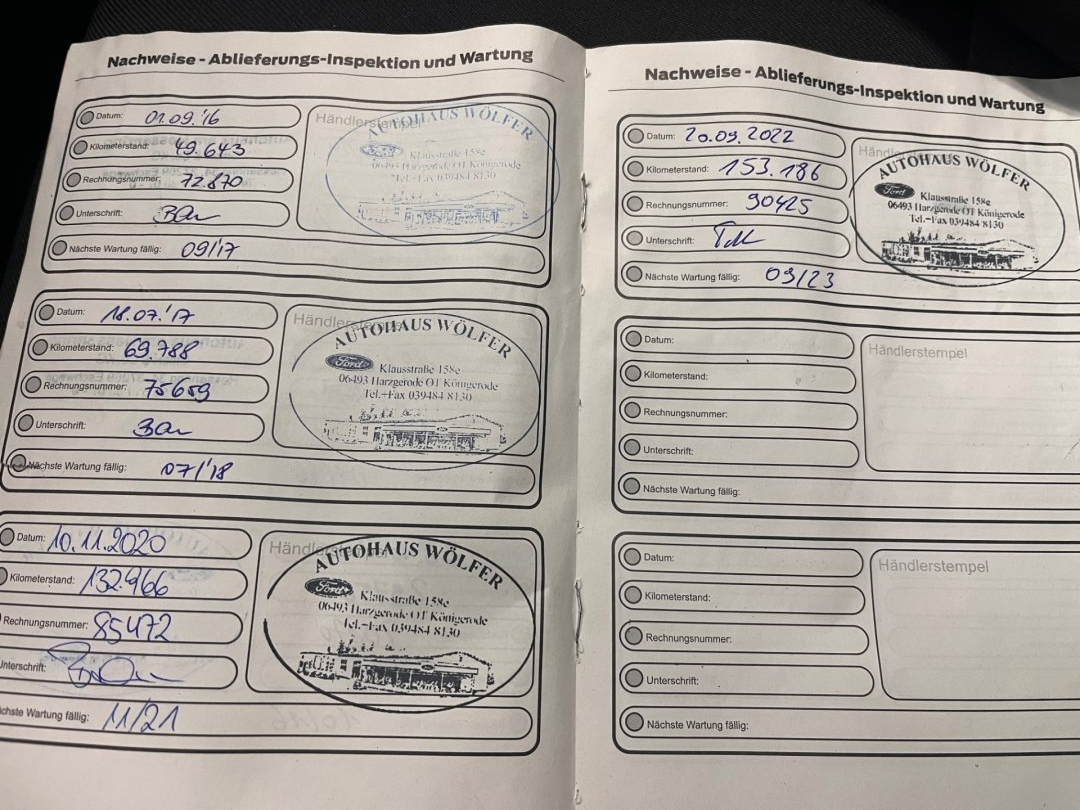 Nachweise - Ablieferungs-Inspektion und Wartung
Datum: 01.09.'16
Kilometerstand: 49.643
Rechnungsnummer: 72.870
Unterschrift:
Nächste Wartung fällig: 09/17
Händlerstempel
AUTOHAUS WÖLFER
Ford
Klausstraße 158e
06493 Harzgerode OT Königerode
Tel.-Fax 039484 8130
Datum: 18.07.'17
Kilometerstand: 69.788
Rechnungsnummer: 75659
Unterschrift:
Nächste Wartung fällig: 07/'18
AUTOHAUS WÖLFER
Ford
Klausstraße 158e
06493 Harzgerode OT Königerode
Tel.-Fax 039484 8130
Datum: 10.11.2020
Kilometerstand: 132.966
Rechnungsnummer: 85472
Unterschrift:
Nächste Wartung fällig: 11/21
AUTOHAUS WÖLFER
Ford
Klausstraße 158e
06493 Harzgerode OT Königerode
Tel.-Fax 039484 8130
Nachweise - Ablieferungs-Inspektion und Wartung
Datum: 20.09.2022
Kilometerstand: 153.186
Rechnungsnummer: 90425
Unterschrift:
Nächste Wartung fällig: 09/23
AUTOHAUS WÖLFER
Ford
Klausstraße 158e
06493 Harzgerode OT Königerode
Tel.-Fax 039484 8130
Datum:
Kilometerstand:
Rechnungsnummer:
Unterschrift:
Nächste Wartung fällig:
Händlerstempel
Datum:
Kilometerstand:
Rechnungsnummer:
Unterschrift:
Nächste Wartung fällig:
Händlerstempel